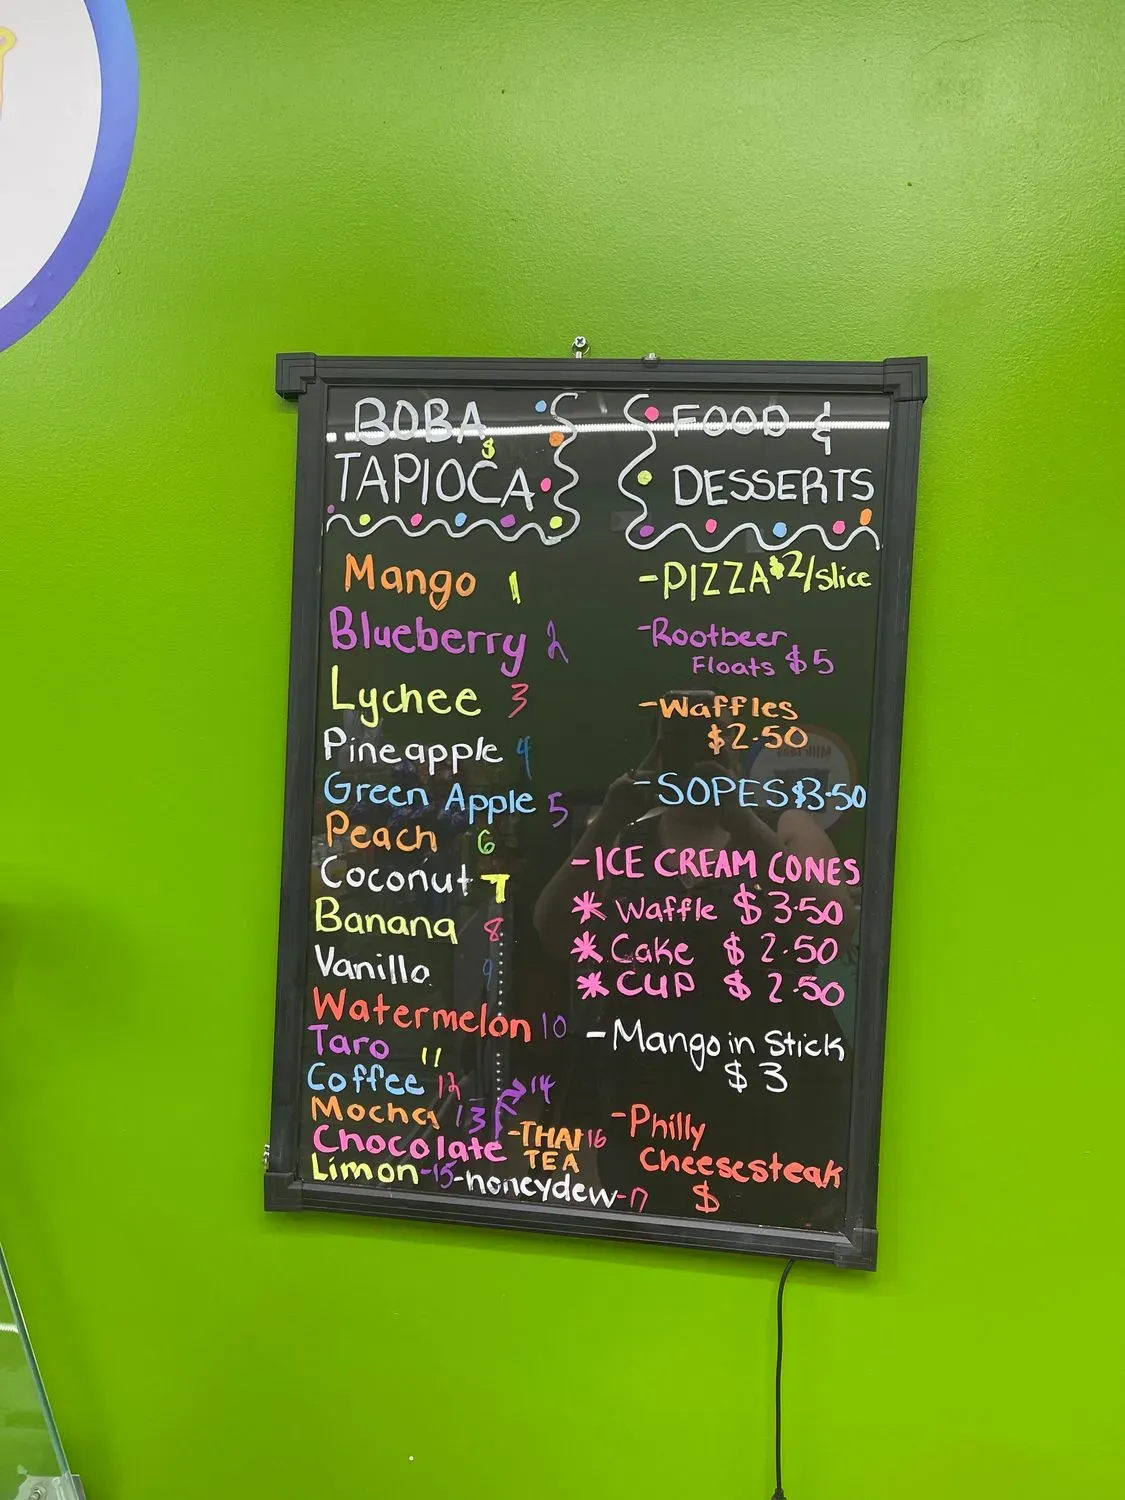 BOBA
$
TAPIOCA
Mango 1
Blueberry 2
Lychee 3
Pineapple 4
Green Apple 5
Peach 6
Coconut 7
Banana 8
Vanilla 9
Watermelon 10
Taro 11
Coffee 12
Mocha 13
Chocolate 14
Limon-15
-THAI 16
TEA
-honeydew-17
FOOD &
DESSERTS
-PIZZA $2/slice
-Rootbeer
Floats $5
-Waffles
$2.50
-SOPES $3.50
-ICE CREAM CONES
* Waffle $3.50
* Cake $2.50
* CUP $2.50
-Mango in Stick
$3
-Philly
Cheesesteak
$